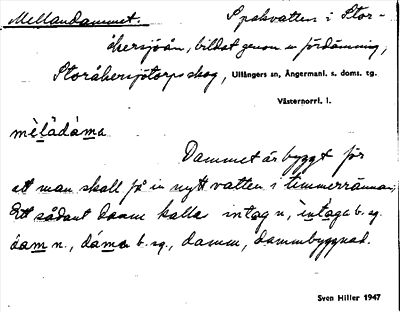 Mellandammet. Spakvatten i Stor-
åkersjöån, bildat genom en fördämning,
Storåkersjötorps skog, Ullångers sn, Ångermanl. s. doms. tg.
Västernorrl. l.
mèlådáma
Dammet är byggt för
att man skall få in nytt vatten i timmerrännan;
Ett sådant damm kallas intag n, ìntaga b. sg.
dam n., dáma b. sg., damm, dammbyggnad.
Sven Hiller 1947